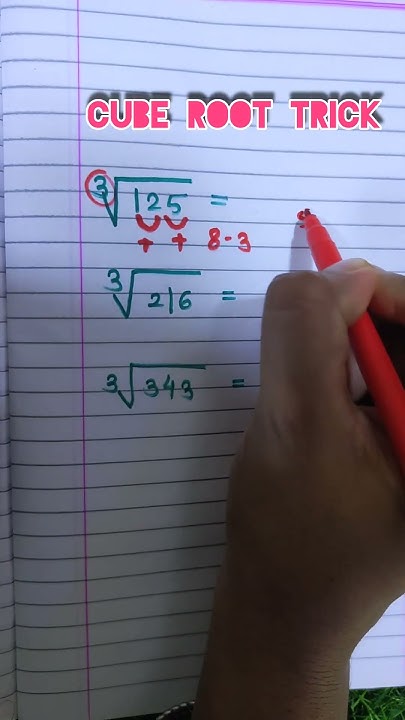 CUBE ROOT TRICK
∛125 =
+ + 8-3
∛216 =
∛343 =